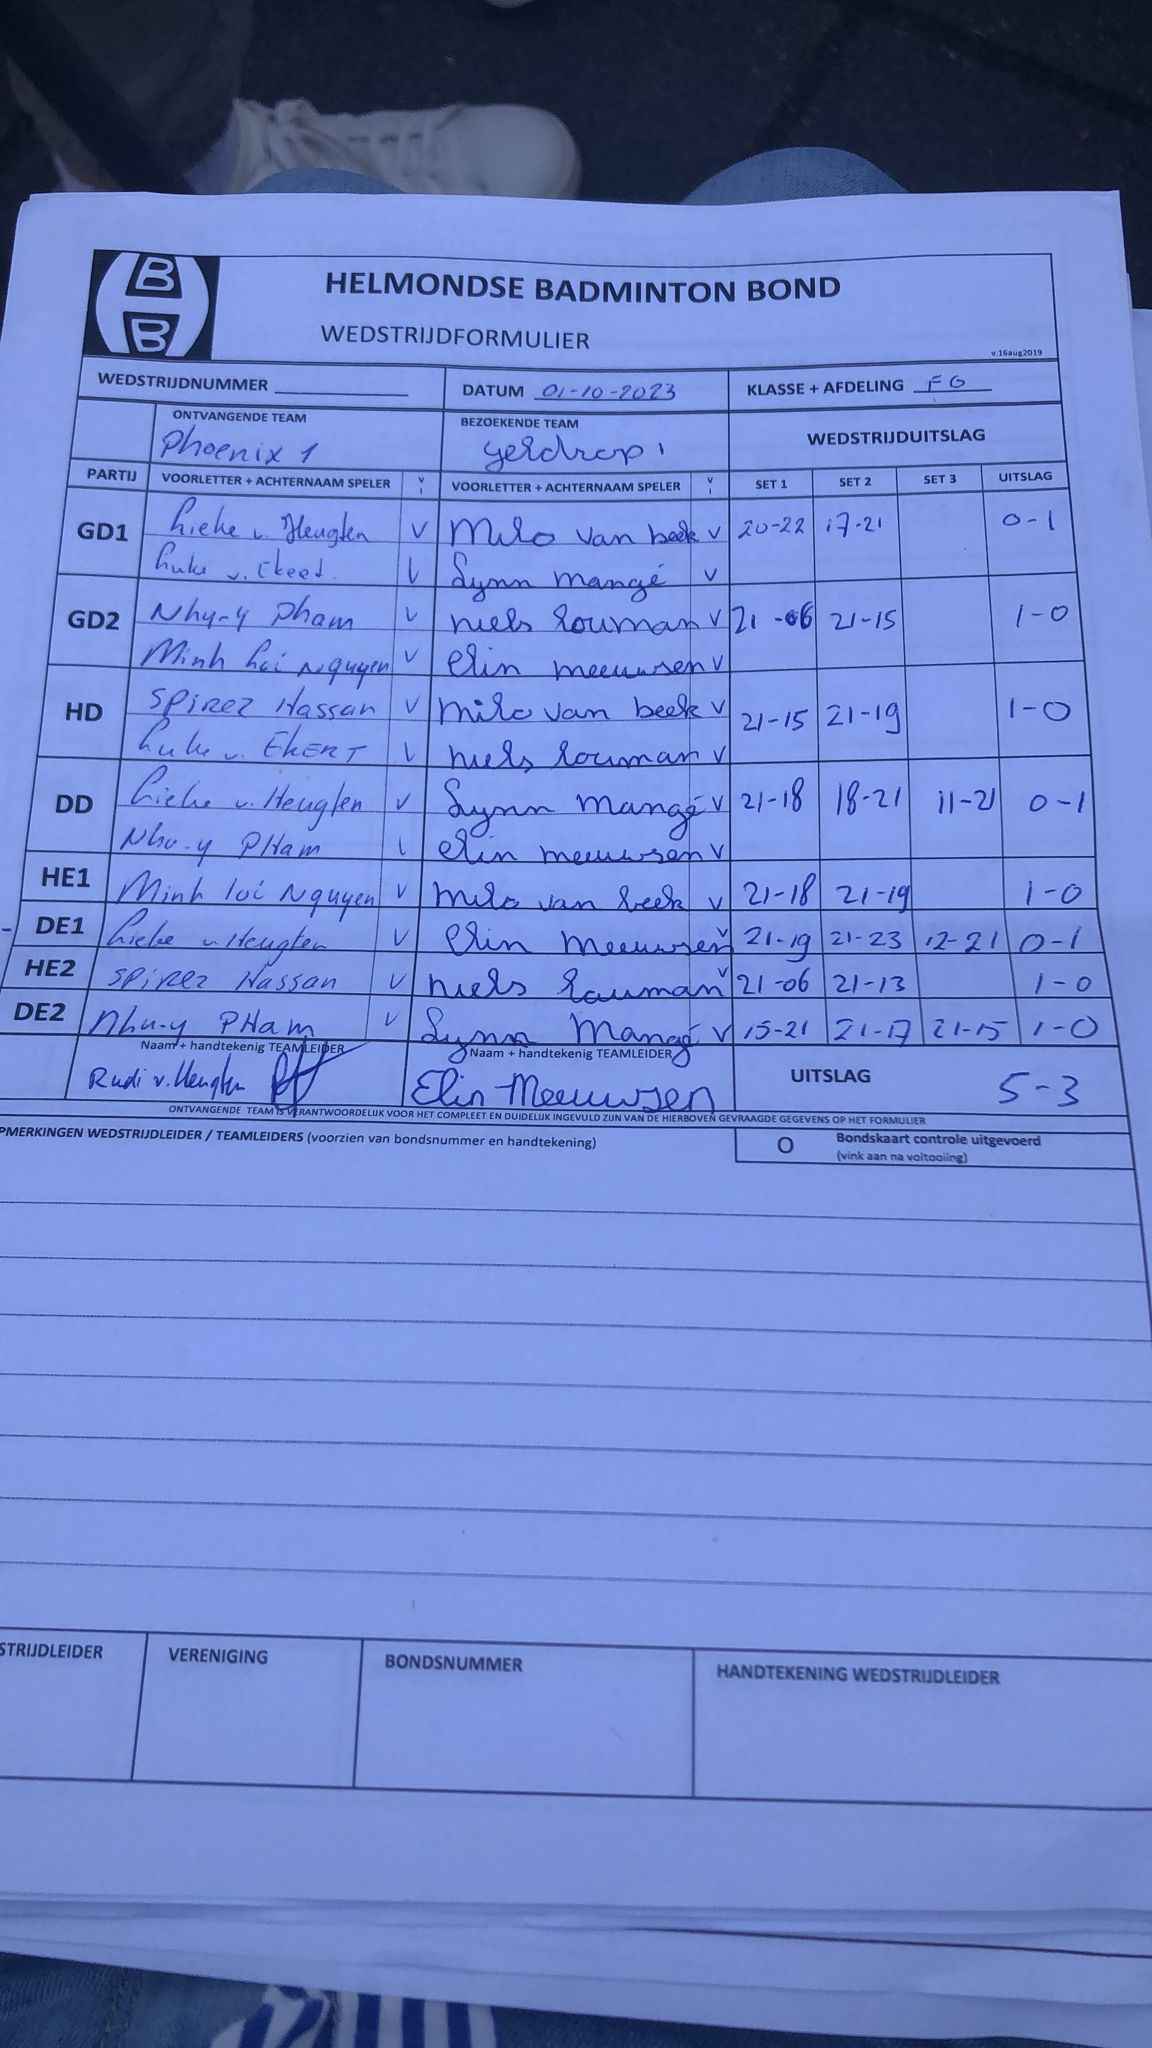 HELMONDSE BADMINTON BOND
WEDSTRIJDFORMULIER
v.16aug2019
WEDSTRIJDNUMMER DATUM 01-10-2023 KLASSE + AFDELING FG
ONTVANGENDE TEAM BEZOEKENDE TEAM WEDSTRIJDUITSLAG
Phoenix 1 gerdrop 1
PARTIJ VOORLETTER + ACHTERNAAM SPELER VOORLETTER + ACHTERNAAM SPELER SET 1 SET 2 SET 3 UITSLAG
GD1 Lieke v. Heugten V Milo van beek v 20-22 17-21 0-1
Luke v. Ekeet. Lynn mangé v
GD2 Nhu-y Pham V niels louman v 21-06 21-15 1-0
Minh loi Nguyen V elin meeuwsen v
HD SPIREZ Hassan V milo van beek v 21-15 21-19 1-0
Luke v. EKERT niels louman v
DD Lieke v. Heugten V Lynn mangé v 21-18 18-21 11-21 0-1
Nhu-y PHam elin meeuwsen v
HE1 Minh loi Nguyen V milo van beek v 21-18 21-19 1-0
DE1 Lieke v. Heugten V Elin meeuwsen v 21-19 21-23 12-21 0-1
HE2 SPIREZ Hassan V niels louman v 21-06 21-13 1-0
DE2 Nhu-y PHam V Lynn Mangé v 15-21 21-17 21-15 1-0
Naam + handtekenig TEAMLEIDER Naam + handtekenig TEAMLEIDER
Rudi v. Heugten Elin Meeuwsen UITSLAG 5-3
ONTVANGENDE TEAM IS VERANTWOORDELIJK VOOR HET COMPLEET EN DUIDELIJK INGEVULD ZIJN VAN DE HIERBOVEN GEVRAAGDE GEGEVENS OP HET FORMULIER
PMERKINGEN WEDSTRIJDLEIDER / TEAMLEIDERS (voorzien van bondsnummer en handtekening) O Bondskaart controle uitgevoerd
(vink aan na voltooiing)
STRIJDLEIDER VERENIGING BONDSNUMMER HANDTEKENING WEDSTRIJDLEIDER